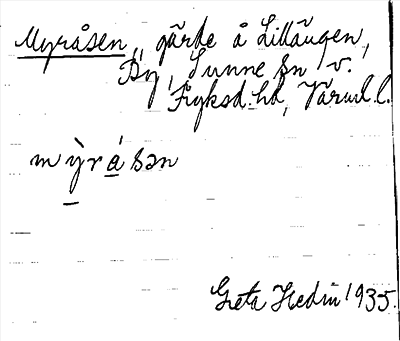 Myråsen, gärde å Lillängen,
By, Sunne sn v.
Fryksd. hd, Värml. l.
mỳråsən
Greta Hedin 1935.